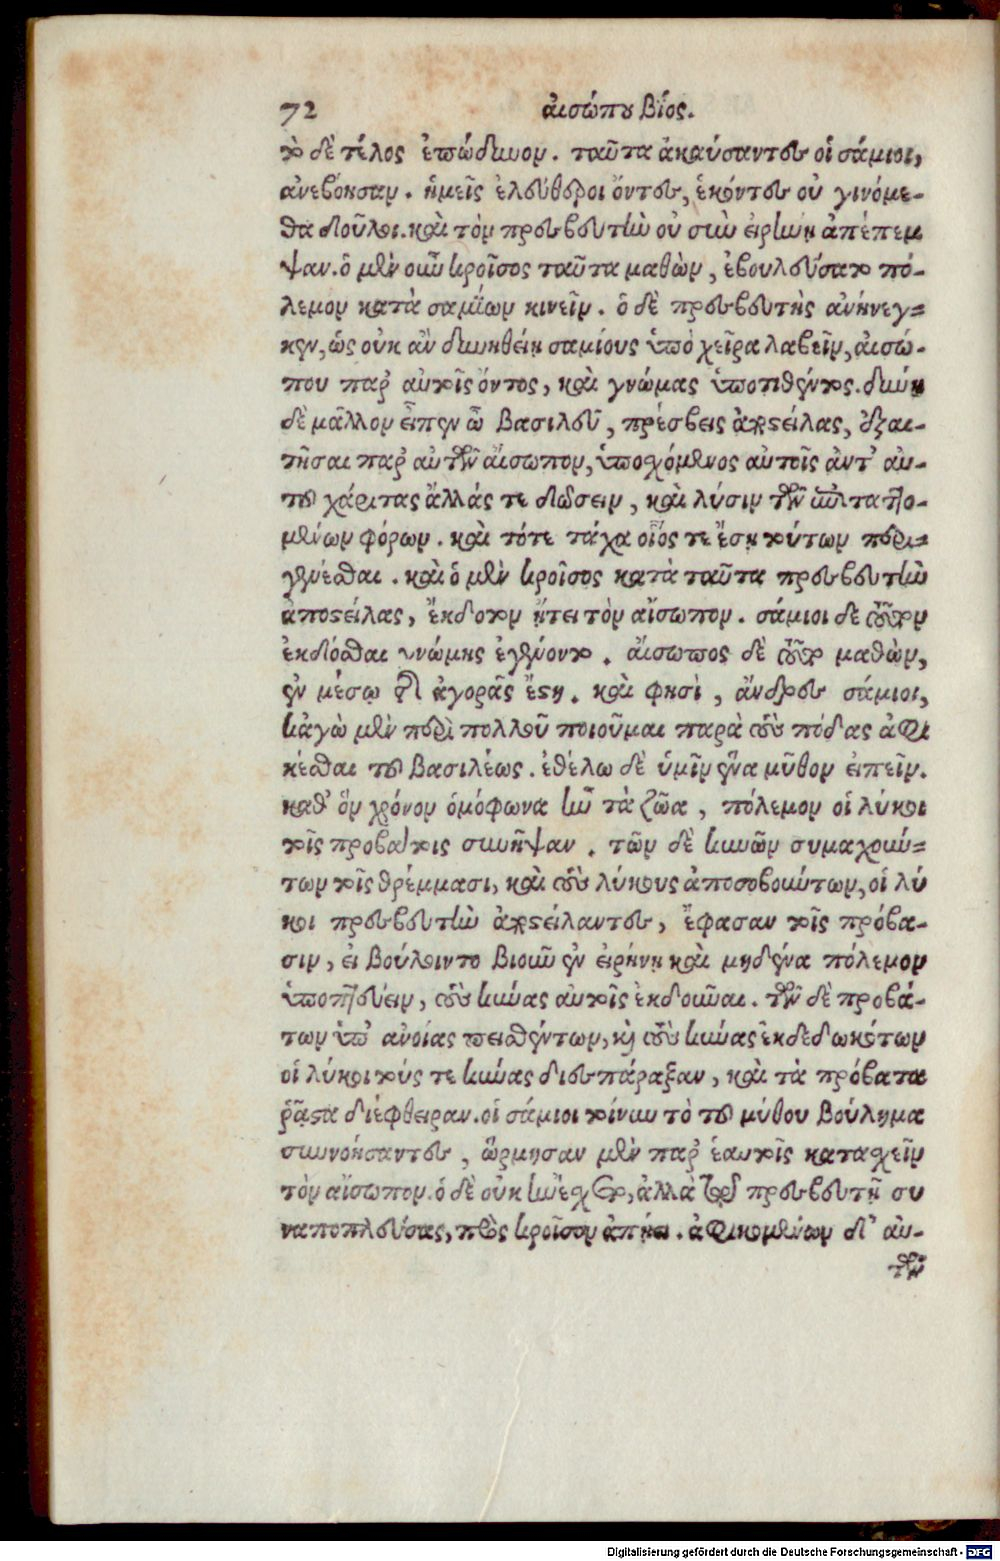 72 αἰσώπου βίος.
τὸ δὲ τέλος ἐπώδυνον. ταῦτα ἀκούσαντες οἱ σάμιοι,
ἀνεβόησαν. ἡμεῖς ἐλεύθεροι ὄντες, ἑκόντες οὐ γινόμε-
θα δοῦλοι. καὶ τὸν πρεσβευτὴν οὐ σὺν εἰρήνῃ ἀπέπεμ
ψαν. ὁ μὲν οὖν κροῖσος ταῦτα μαθὼν, ἐβουλεύσατο πό-
λεμον κατὰ σαμίων κινεῖν. ὁ δὲ πρεσβευτὴς ἀνήνεγ-
κεν, ὡς οὐκ ἂν δυνηθείη σαμίους ὑπὸ χεῖρα λαβεῖν, αἰσώ-
που παρ' αὐτοῖς ὄντος, καὶ γνώμας ὑποτιθέντος. δύνῃ
δὲ μᾶλλον εἶπεν ὦ βασιλεῦ, πρέσβεις ἀποστείλας, ἐξαι-
τῆσαι παρ' αὐτῶν αἴσωπον, ὑποσχόμενος αὐτοῖς ἀντ' αὐ-
τοῦ χάριτας ἄλλάς τε δώσειν, καὶ λύσιν τῶν ἐπιταττο-
μένων φόρων. καὶ τότε τάχα οἷός τε ἔσῃ τούτων περι-
γενέσθαι. καὶ ὁ μὲν κροῖσος κατὰ ταῦτα πρεσβευτὴν
ἀποστείλας, ἔκδοτον ᾔτει τὸν αἴσωπον. σάμιοι δὲ τοῦτον
ἐκδόσθαι γνώμης ἐγένοντο. αἴσωπος δὲ τοῦτο μαθὼν,
ἐν μέσῳ τῆς ἀγορᾶς ἔστη. καὶ φησὶ, ἄνδρες σάμιοι,
κἀγὼ μὲν περὶ πολλοῦ ποιοῦμαι παρὰ τοὺς πόδας ἀφι
κέσθαι τοῦ βασιλέως. ἐθέλω δὲ ὑμῖν ἕνα μῦθον εἰπεῖν.
καθ' ὃν χρόνον ὁμόφωνα ἦν τὰ ζῶα, πόλεμον οἱ λύκοι
τοῖς προβάτοις συνῆψαν. τῶν δὲ κυνῶν συμαχούν-
των τοῖς θρέμμασι, καὶ τοὺς λύκους ἀποσοβούντων, οἱ λύ
κοι πρεσβευτὴν ἀποστείλαντες, ἔφασαν τοῖς πρόβα-
σιν, εἰ βούλοιντο βιοῦν ἐν εἰρήνῃ καὶ μηδένα πόλεμον
ὑποπτεύειν, τοὺς κύνας αὐτοῖς ἐκδοῦναι. τῶν δὲ προβά-
των ὑπ' ἀνοίας πεισθέντων, καὶ τοὺς κύνας ἐκδεδωκότων
οἱ λύκοι τούς τε κύνας διεσπάραξαν, καὶ τὰ πρόβατα
ῥᾷστα διέφθειραν. οἱ σάμιοι τοίνυν τὸ τοῦ μύθου βούλημα
συννοήσαντες, ὥρμησαν μὲν παρ' ἑαυτοῖς κατασχεῖν
τὸν αἴσωπον. ὁ δὲ οὐκ ἠνέσχετο, ἀλλὰ τῷ πρεσβευτῇ συ
ναποπλεύσας, πρὸς κροῖσον ἀπῄει. ἀφικομένων δ' αὐ-
τῶν
Digitalisierung gefördert durch die Deutsche Forschungsgemeinschaft - DFG